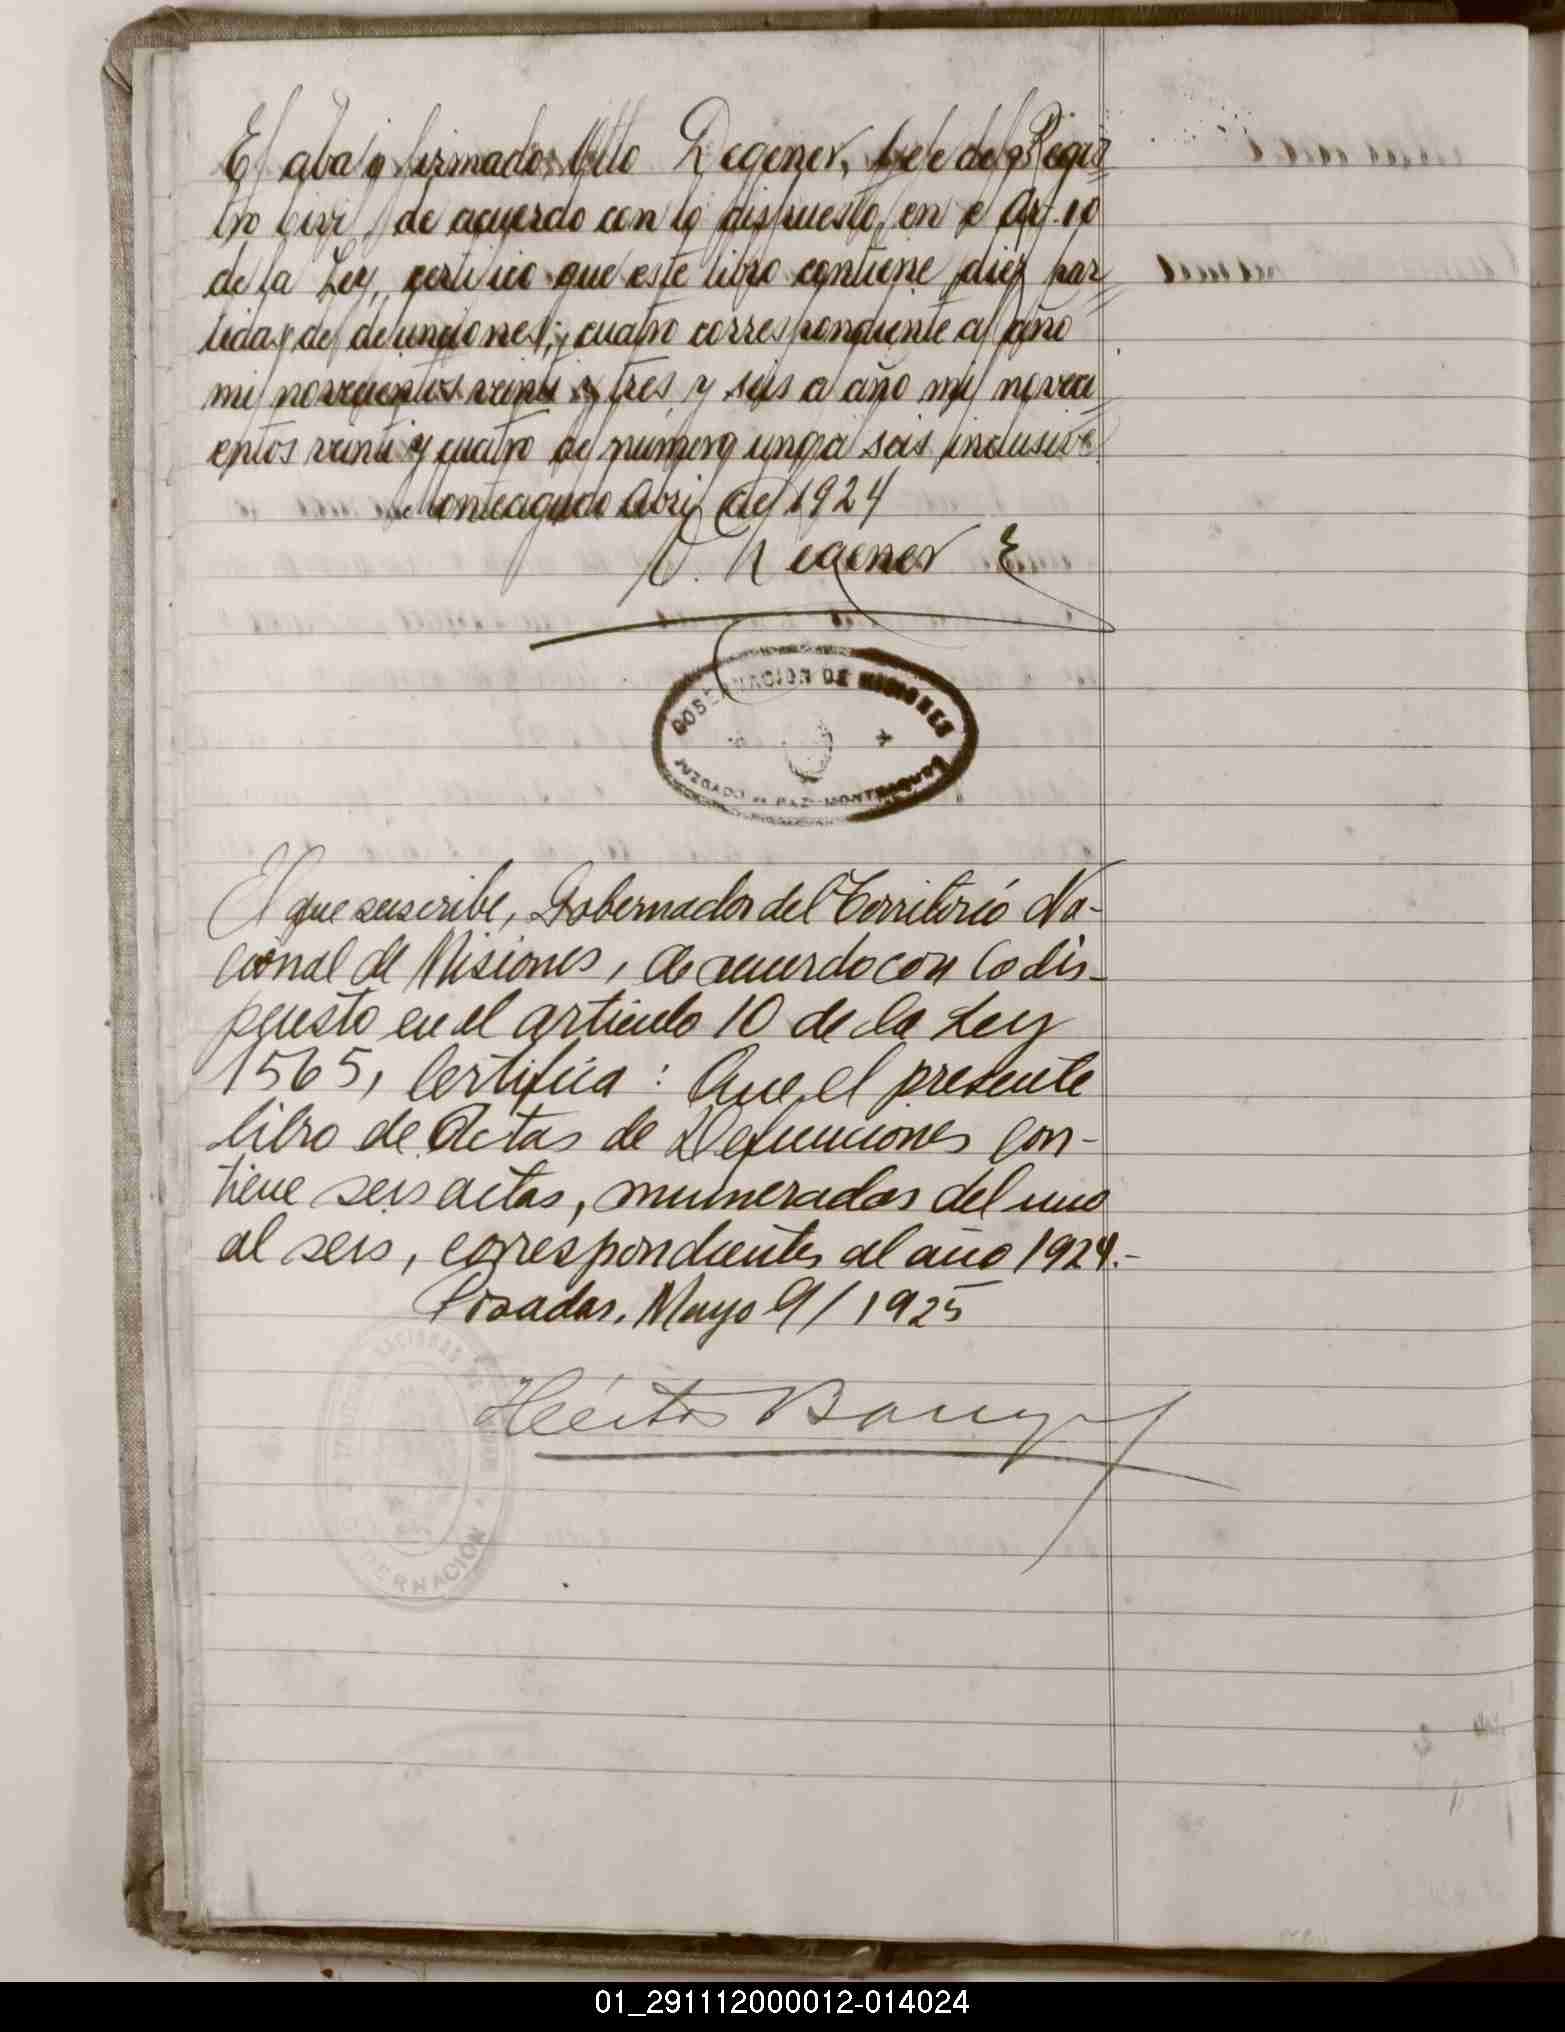 El abajo firmado Otto Degener, Jefe del Regis=
tro Civil, de acuerdo con lo dispuesto en el Art. 10
de la Ley, certifico que este libro contiene diez par=
tidas de defunciones, cuatro correspondiente al año
mil novecientos veinti y tres y seis al año mil noveci=
entos veinti y cuatro del número uno al seis inclusive.
Monteagudo Abril de 1924
O. Degener E
GOBERNACION DE MISIONES
JUZGADO DE PAZ MONTEAGUDO
El que suscribe, Gobernador del Territorio Na-
cional de Misiones, de acuerdo con lo dis-
puesto en el artículo 10 de la Ley
1565, Certifica: Que el presente
libro de Actas de Defunciones con-
tiene seis actas, numeradas del uno
al seis, correspondientes al año 1924.-
Posadas, Mayo 9/1925
Héctor
GOBERNACION
01_291112000012-014024